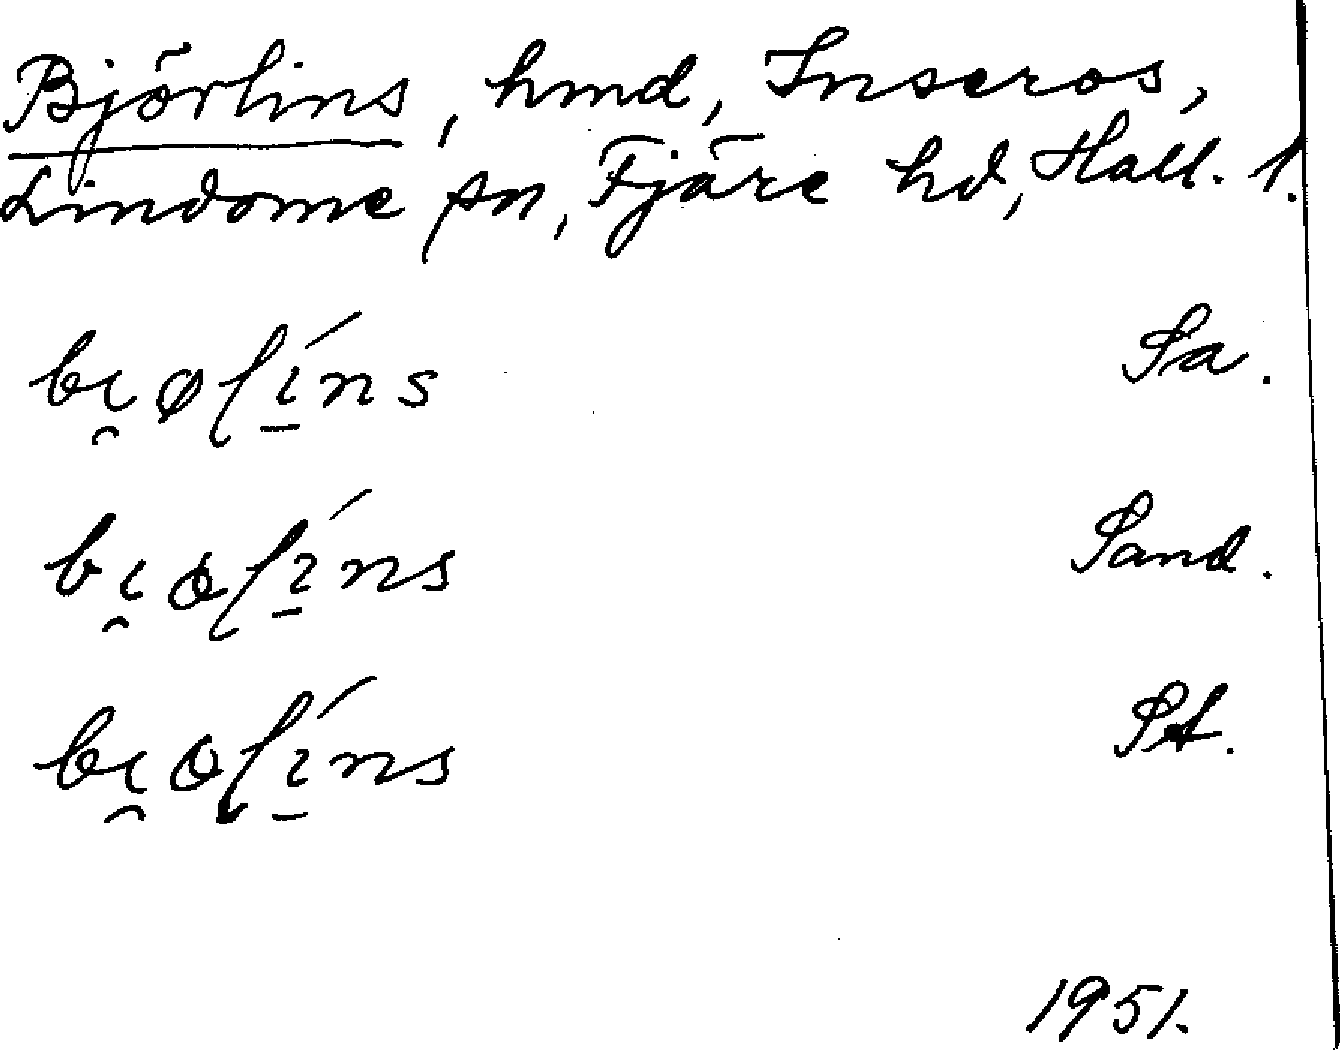 Björlins, hmd, Inseros,
Lindome sn, Fjäre hd, Hall. l.
bı̯øľı̱́ns Sa.
bı̯ꝋlı̱́ns Sand.
bı̯ꝋlı̱́ns St.
1951.